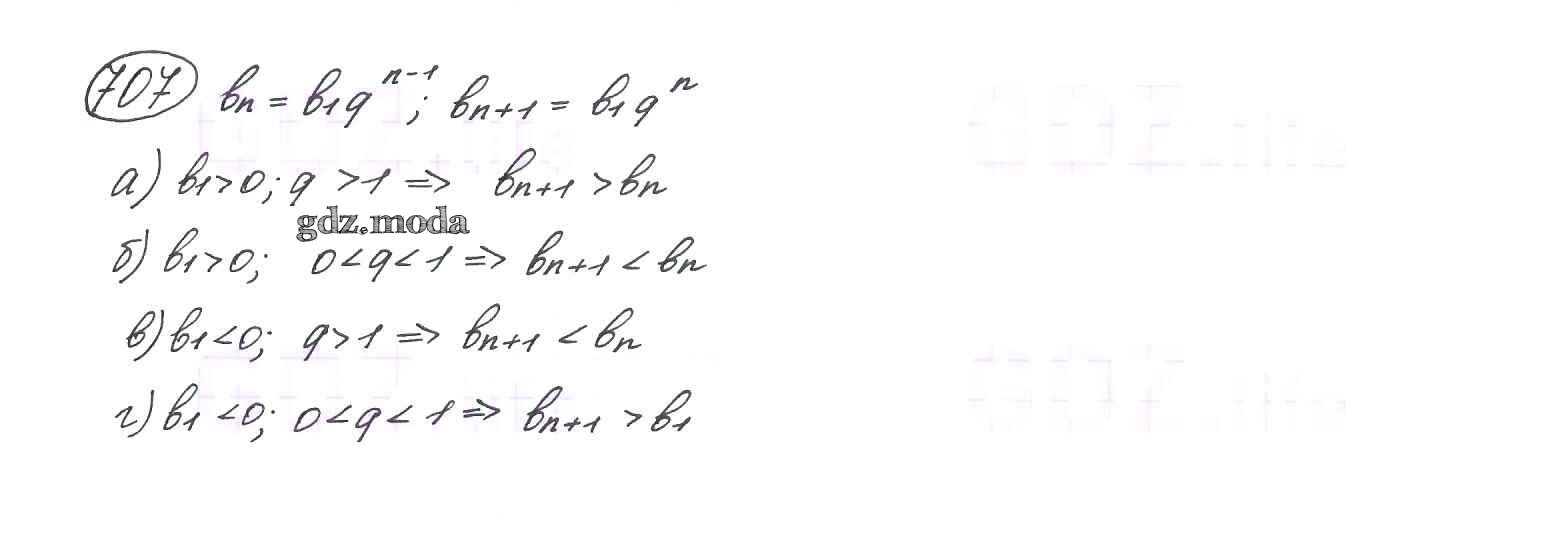 707 bn = b1q^n-1; bn+1 = b1q^n
а) b1>0; q >1 => bn+1 >bn
gdz.moda
б) b1>0; 0<q<1 => bn+1 < bn
в) b1<0; q>1 => bn+1 < bn
г) b1 <0; 0<q< 1 => bn+1 >b1